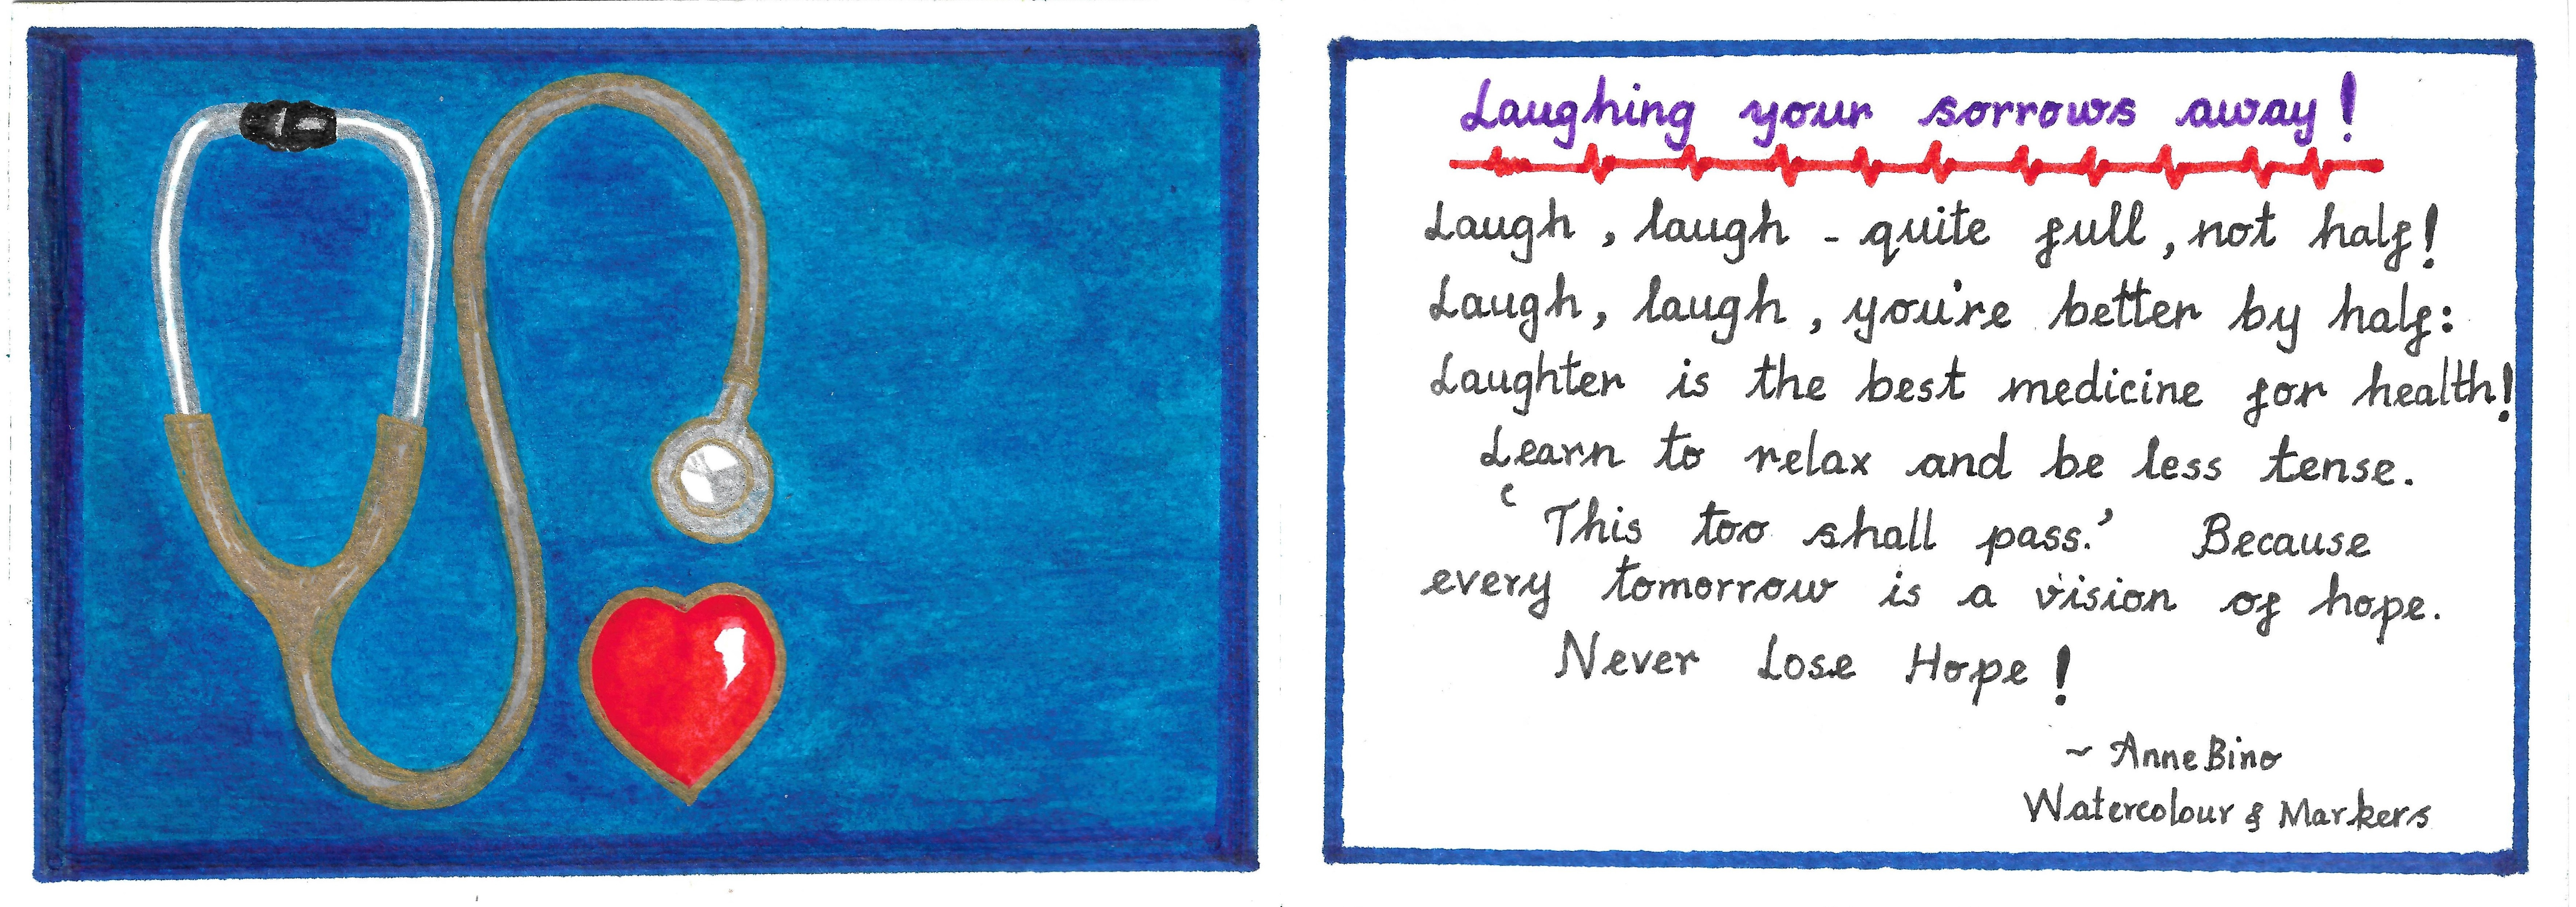 Laughing your sorrows away!
Laugh, laugh - quite full, not half!
Laugh, laugh, you're better by half:
Laughter is the best medicine for health!
Learn to relax and be less tense.
'This too shall pass.' Because
every tomorrow is a vision of hope.
Never Lose Hope!
~ Anne Bino
Watercolour & Markers